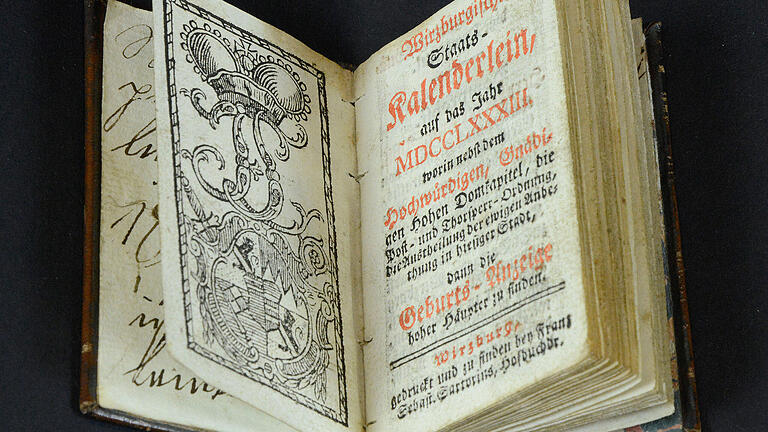 Wirzburgisch
Staats-
Kalenderlein,
auf das Jahr
MDCCLXXXIII,
worin nebst dem
Hochwürdigen, Gnädi-
gen Hohen Domkapitel, die
Post- und Thorsperr-Ordnung,
die Austheilung der ewigen Anbe-
thung in hiesiger Stadt,
dann die
Geburts-Anzeige
hoher Häupter zu finden.
Wirzburg,
gedruckt und zu finden bey Franz
Sebast. Sartorius, Hofbuchdr.